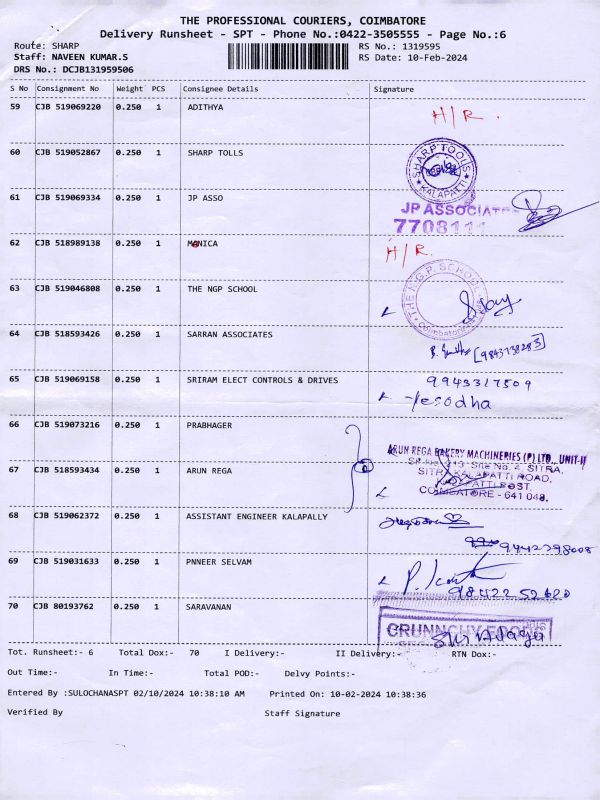 THE PROFESSIONAL COURIERS, COIMBATORE
Delivery Runsheet - SPT - Phone No.:0422-3505555 - Page No.:6
Route: SHARP RS No.: 1319595
Staff: NAVEEN KUMAR.S RS Date: 10-Feb-2024
DRS No.: DCJB131959506
S No Consignment No Weight PCS Consignee Details Signature
59 CJB 519069220 0.250 1 ADITHYA H/R.
60 CJB 519052867 0.250 1 SHARP TOLLS SHARP TOOLS KALAPATTI
61 CJB 519069334 0.250 1 JP ASSO JP ASSOCIATE
62 CJB 518989138 0.250 1 MONICA H/R.
63 CJB 519046808 0.250 1 THE NGP SCHOOL THE N.G.P. SCHOOL Coimbatore
64 CJB 518593426 0.250 1 SARRAN ASSOCIATES
65 CJB 519069158 0.250 1 SRIRAM ELECT CONTROLS & DRIVES 9943317509
Yesodha
66 CJB 519073216 0.250 1 PRABHAGER
ARUN REGA BAKERY MACHINERIES (P) LTD., UNIT-II
SITRA,
67 CJB 518593434 0.250 1 ARUN REGA SITRA KALAPATTI ROAD,
POST,
COIMBATORE - 641 048.
68 CJB 519062372 0.250 1 ASSISTANT ENGINEER KALAPALLY
9442398608
69 CJB 519031633 0.250 1 PNNEER SELVAM
98422 52620
70 CJB 80193762 0.250 1 SARAVANAN CRUNNCHY FOODS
Tot. Runsheet:- 6 Total Dox:- 70 I Delivery:- II Delivery:- RTN Dox:-
Out Time:- In Time:- Total POD:- Delvy Points:-
Entered By :SULOCHANASPT 02/10/2024 10:38:10 AM Printed On: 10-02-2024 10:38:36
Verified By Staff Signature